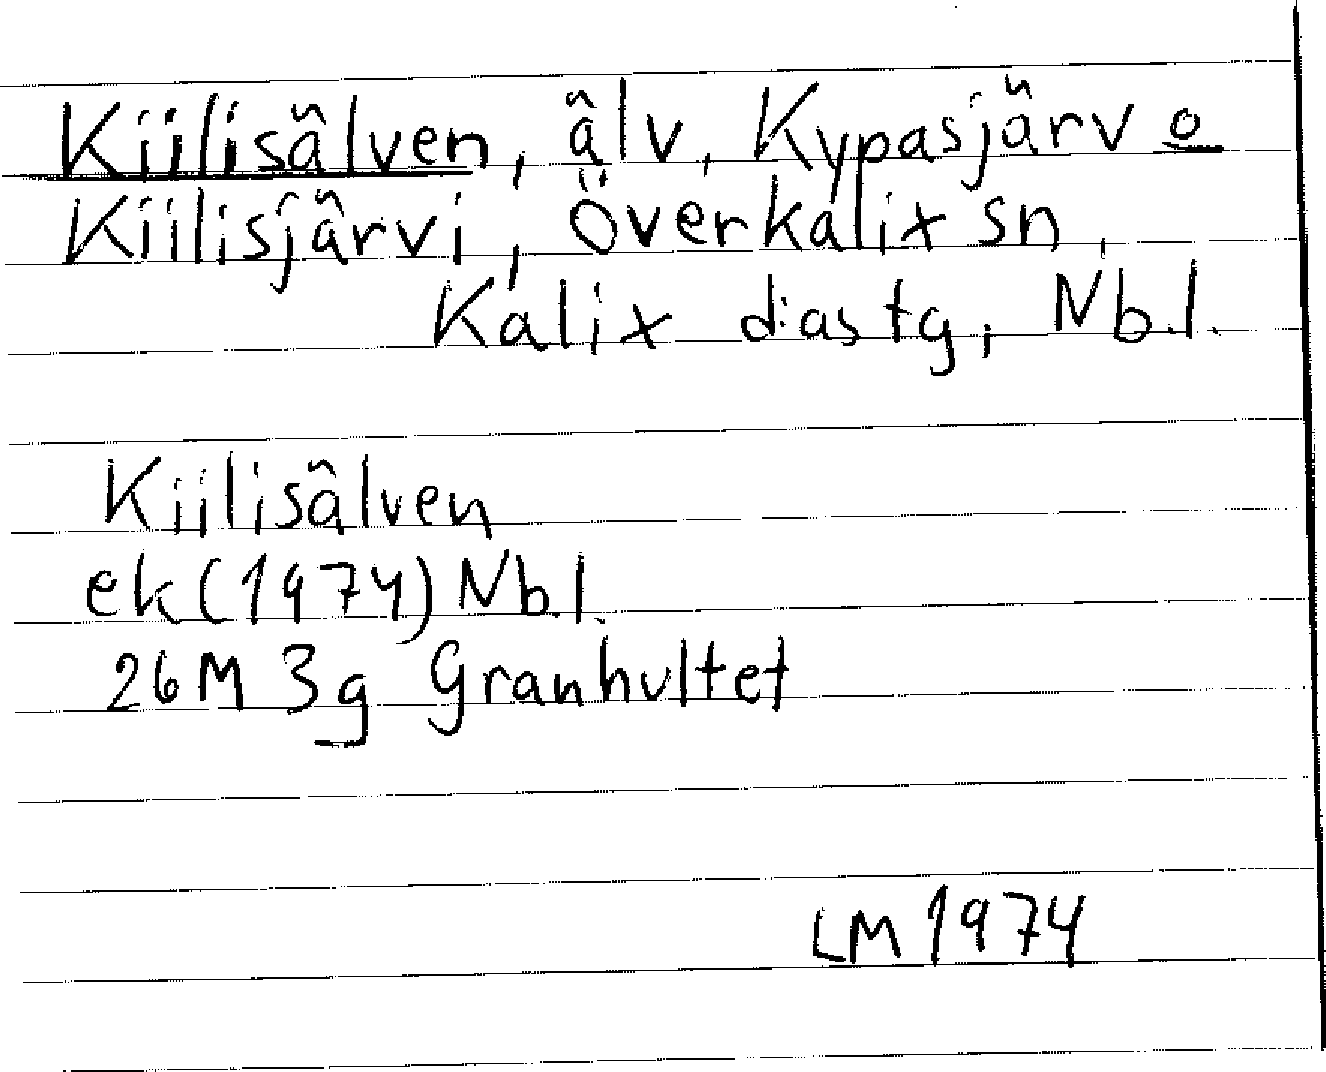 Kiilisälven, älv, Kypasjärv o
Kiilisjärvi, Överkalix sn,
Kalix d:astg, Nb.l.
Kiilisälven
ek (1974) Nb.l.
26M 3g Granhultet
LM 1974